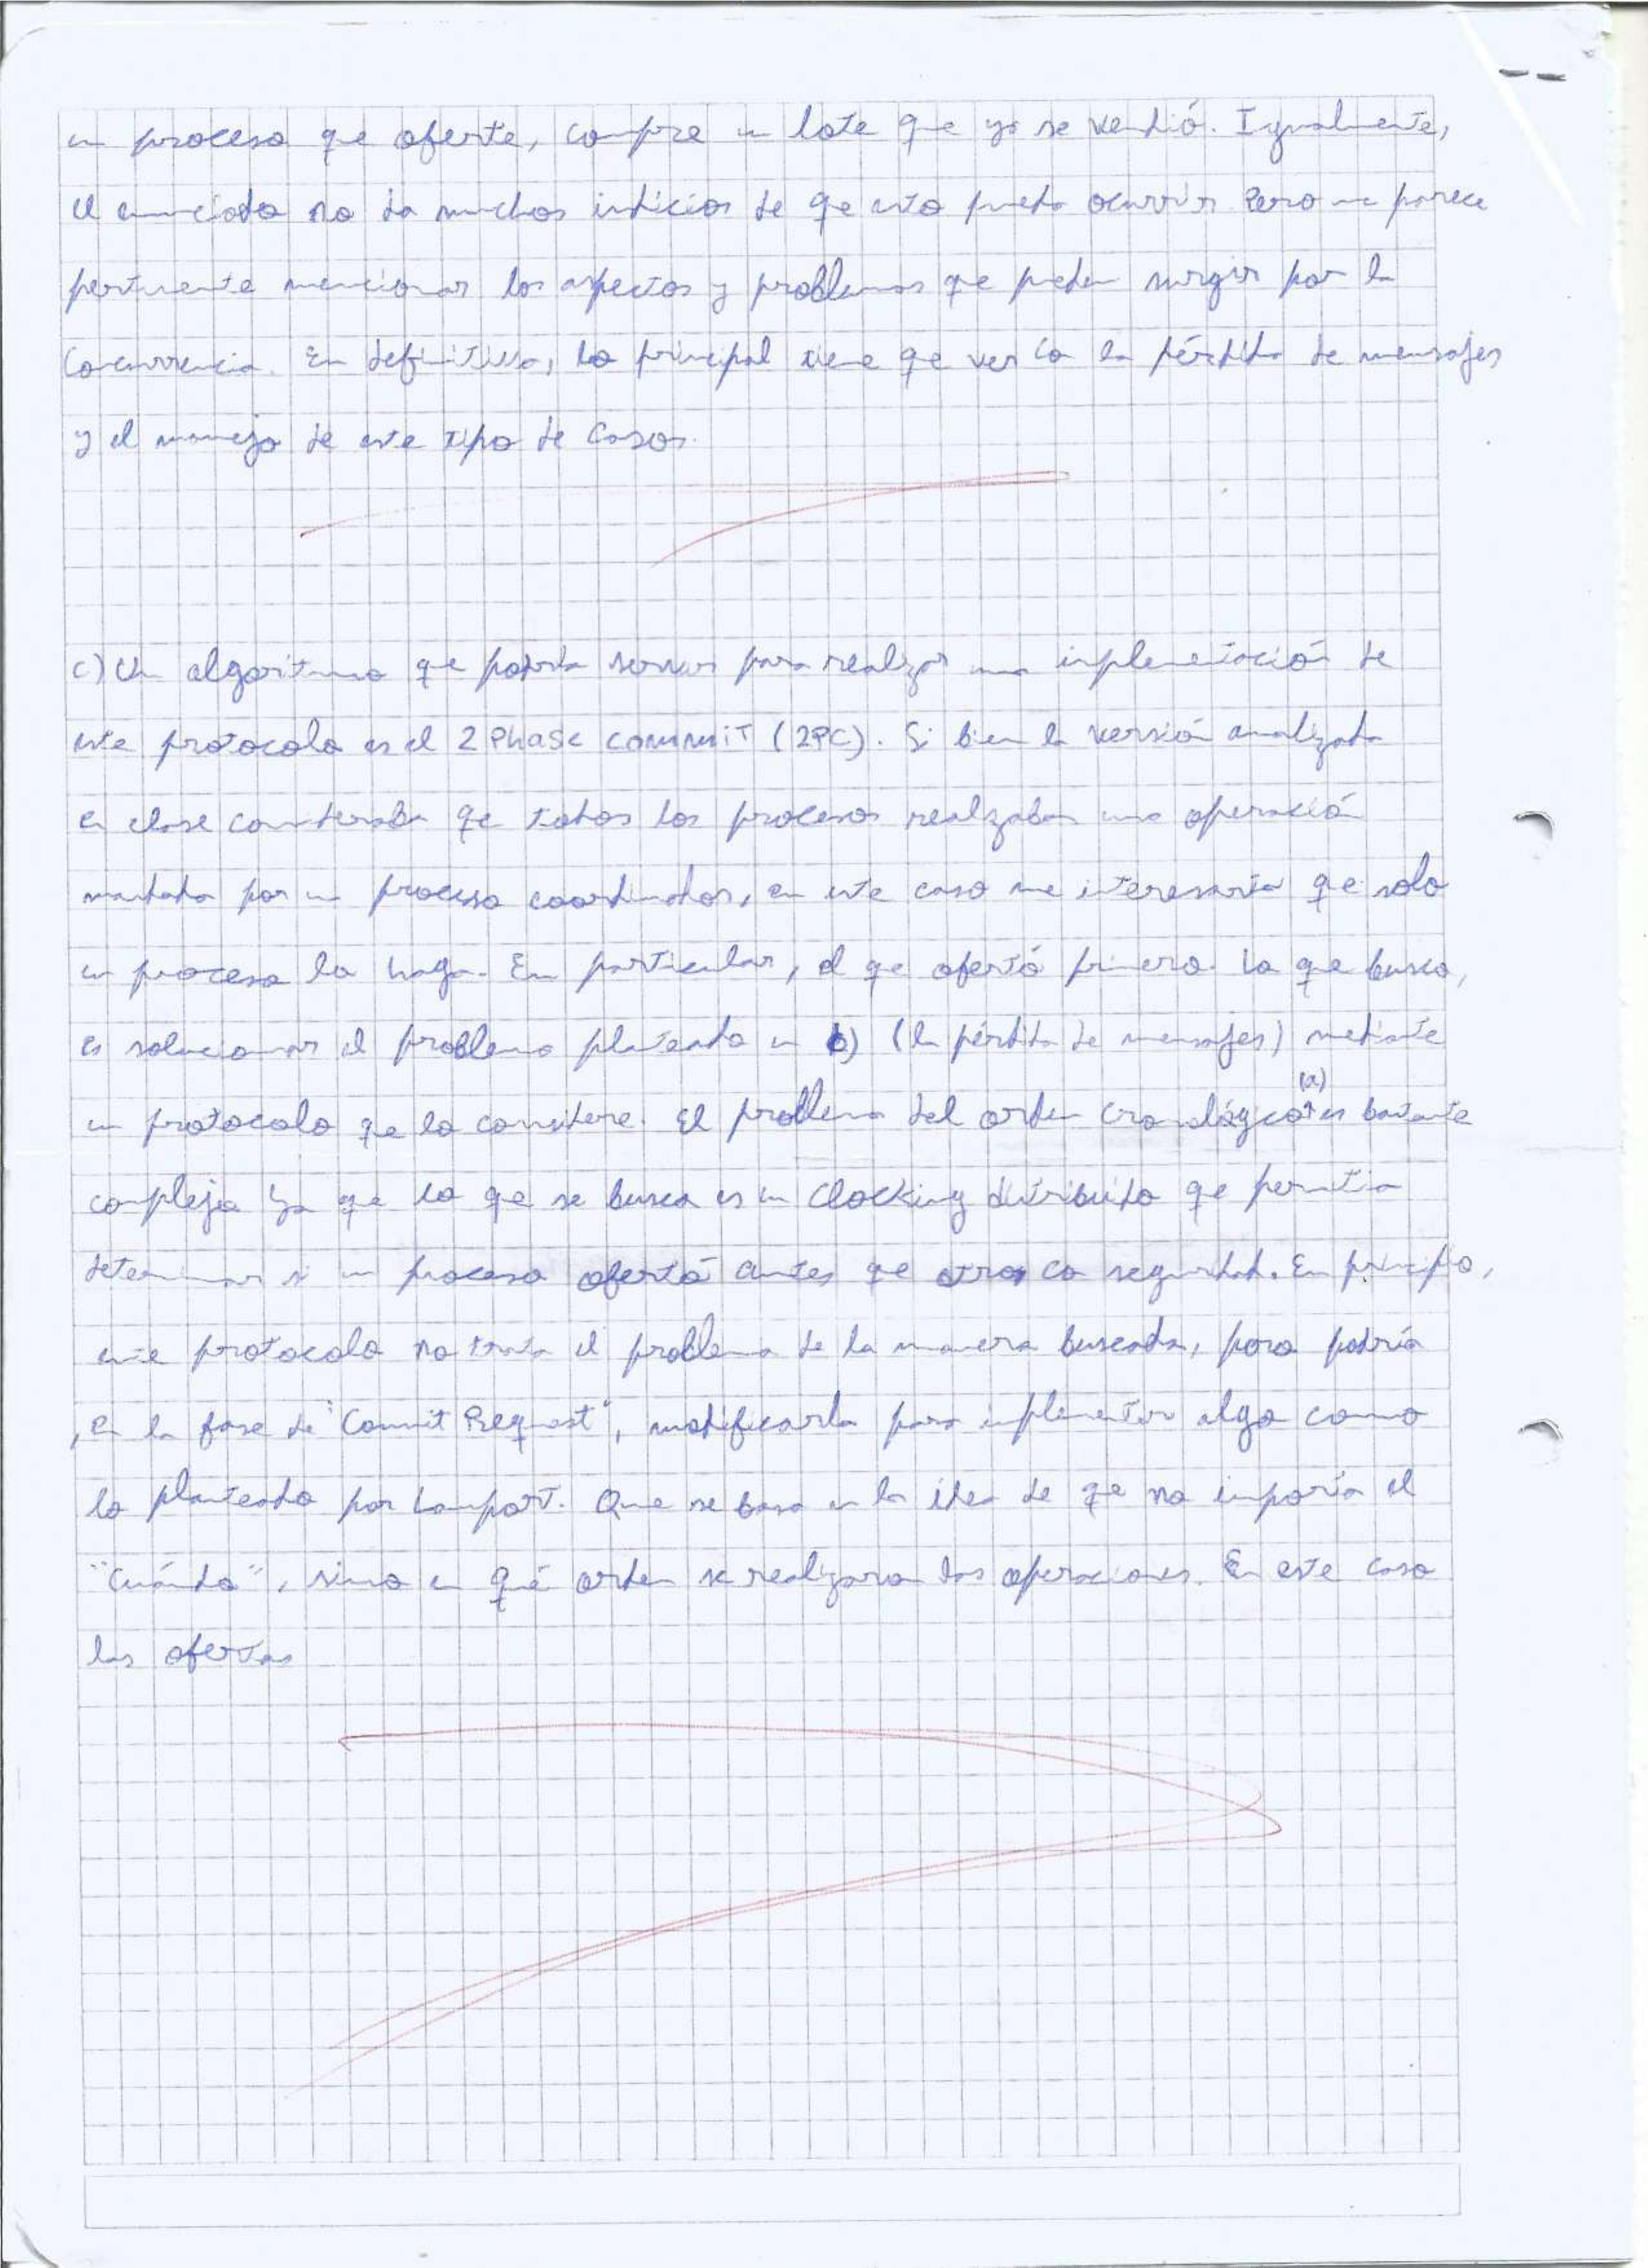 un proceso que oferte, compre un lote que ya se vendió. Igualmente,
el enunciado no da muchos indicios de que esto pueda ocurrir. Pero me parece
pertinente mencionar los aspectos y problemas que pueden surgir por la
concurrencia. En definitiva, lo principal tiene que ver con la pérdida de mensajes
y el manejo de este tipo de casos.
c) Un algoritmo que podría servir para realizar una implementación de
este protocolo es el 2 Phase commit (2PC). Si bien la versión analizada
en clase consideraba que todos los procesos realizaban una operación
mandada por un proceso coordinador, en este caso me interesaría que solo
un proceso la haga. En particular, el que ofertó primero. Lo que busco,
es solucionar el problema planteado en b) (la pérdida de mensajes) mediante
un protocolo que lo considere. El problema del orden cronológico (a) es bastante
complejo ya que lo que se busca es un clocking distribuido que permitia
determinar si un proceso ofertó antes que otro con seguridad. En principio,
este protocolo no trata el problema de la manera buscada, pero podría
, en la fase de "Commit Request", modificarla para implementar algo como
lo planteado por Lamport. Que se basa en la idea de que no importa el
"cuándo", sino en qué orden se realizaron las operaciones. En este caso
las ofertas